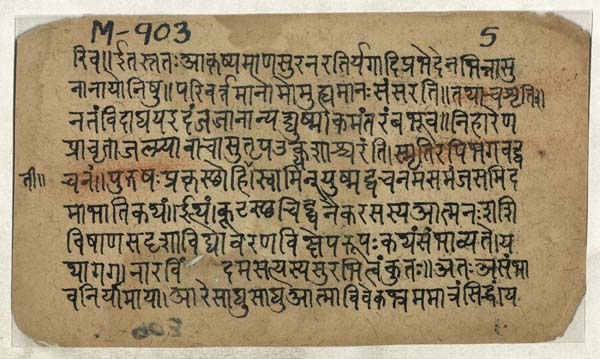 M-903 5
रिव॥ ईतस्ततः आकृष्यमाणसुरनरतिर्यगादिप्रभेदेनभिन्नासु
नानायोनिषु॥ परिवर्त्तमानोमोमुह्यमानः संसरति॥ तथाचश्रुतिः॥
नतंविदाथयइदंजजानान्यद्युष्माकमंतरंबभूव॥ निहारेण
प्रावृताजल्प्याचासुतृपउक्थशाश्चरंति॥ स्मृतिरपिभगवद्व
ती॥ चनं॥ पुरुषः प्रकृतिस्थोहि॥ स्वामिन्युष्मद्वचनमसमंजसमिद
माभातिकथं॥ ईत्थं॥ कूटस्थचिद्घनैकरसस्यआत्मनः शशि
विषाणसदृशाविद्यावरणविक्षेपरूपः कथंसंभाव्यते॥ य
थागग नारविं दमसत्यस्यसुरभित्वंकुतः॥ अतः असंभा
वनियोमाया॥ आरेसाधुसाधुआत्माविवेक